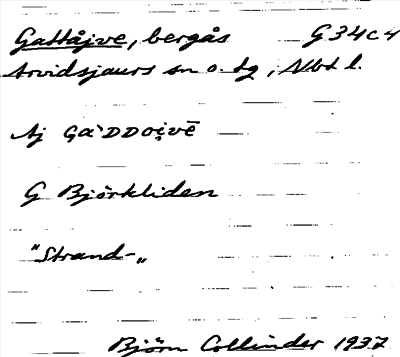 Gattåjve, bergås G34c4
Arvidsjaurs sn o. tg, Nbt l.
Aj GàDDOi̯vē
G Björkliden
"Strand-"
Björn Collinder 1937